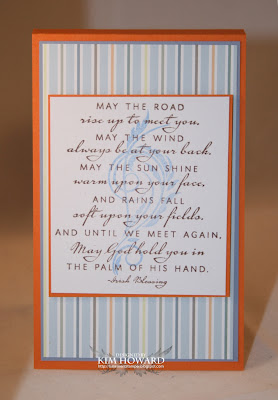 MAY THE ROAD
rise up to meet you.
MAY THE WIND
always be at your back.
MAY THE SUN SHINE
warm upon your face,
AND RAINS FALL
soft upon your fields.
AND UNTIL WE MEET AGAIN,
May God hold you in
THE PALM OF HIS HAND.
-Irish Blessing
DESIGNED BY
KIM HOWARD